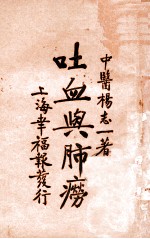 中醫楊志一著
吐血與肺癆
上海幸福報發行